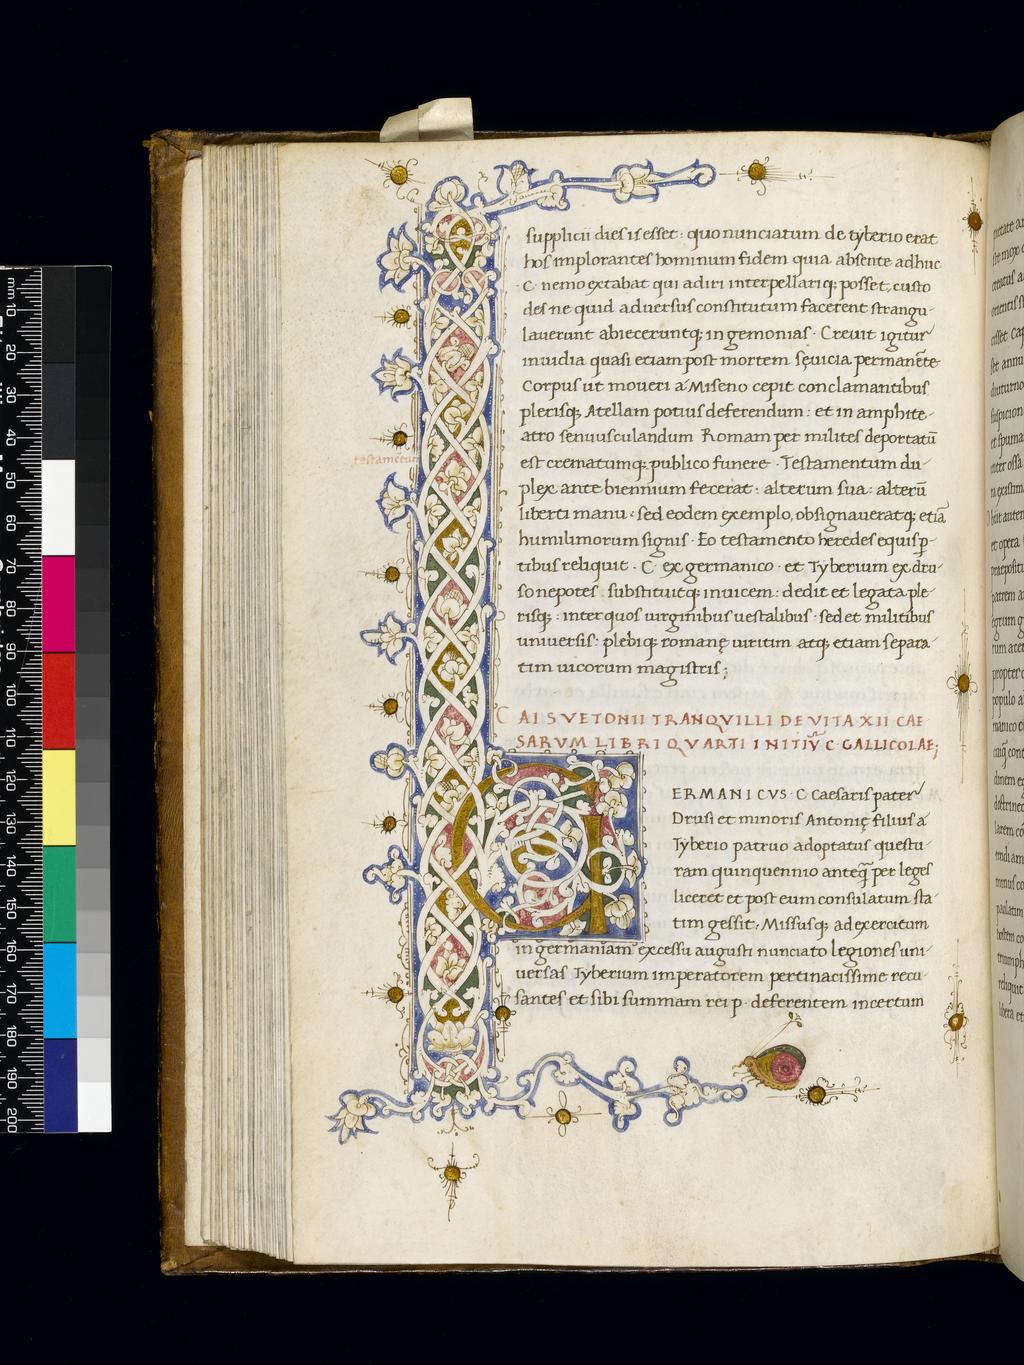 supplicii dies is esset: quo nunciatum de tyberio erat
hos implorantes hominum fidem quia absente adhuc
·C· nemo extabat qui adiri interpellariq; posset, custo
des ne quid aduersus constitutum facerent strangu-
lauerunt abieceruntq; in gemonias· Creuit igitur
inuidia quasi etiam post mortem sęuicia permanēte
Corpus ut moueri a Miseno cepit conclamantibus
plerisq; Atellam potius deferendum: et in amphite-
atro semiusculandum Romam per milites deportatū
est crematumq; publico funere· Testamentum du-
plex ante biennium fecerat: alterum sua: alterū
liberti manu: sed eodem exemplo, obsignaueratq; etiā
humilimorum signis· Eo testamento heredes equis p̱-
tibus reliquit· C· ex germanico· et Tyberium ex dru-
so nepotes, substituitq; inuicem: dedit et legata ple-
risq;: inter quos uirginibus uestalibus· sed et militibus
uniuersis: plebiq; romanę uiritim atq; etiam separa-
tim uicorum magistris;
testamētum
CAI SVETONII TRANQVILLI DE VITA XII CAE
SARVM LIBRI QVARTI INITIV̄ C GALLICOLAE;
G
ERMANICVS· C Caesaris pater
Drusi et minoris Antonię filius a
Tyberio patruo adoptatus questu-
ram quinquennio anteq̄ per leges
liceret et post eum consulatum sta-
tim gessit: Missusq; ad exercitum
in germaniam excessu augusti nunciato legiones uni-
uersas Tyberium imperatorem pertinacissime recu-
santes et sibi summam rei p· deferentem incertum
mm 10 20 30 40 50 60 70 80 90 100 110 120 130 140 150 160 170 180 190 200